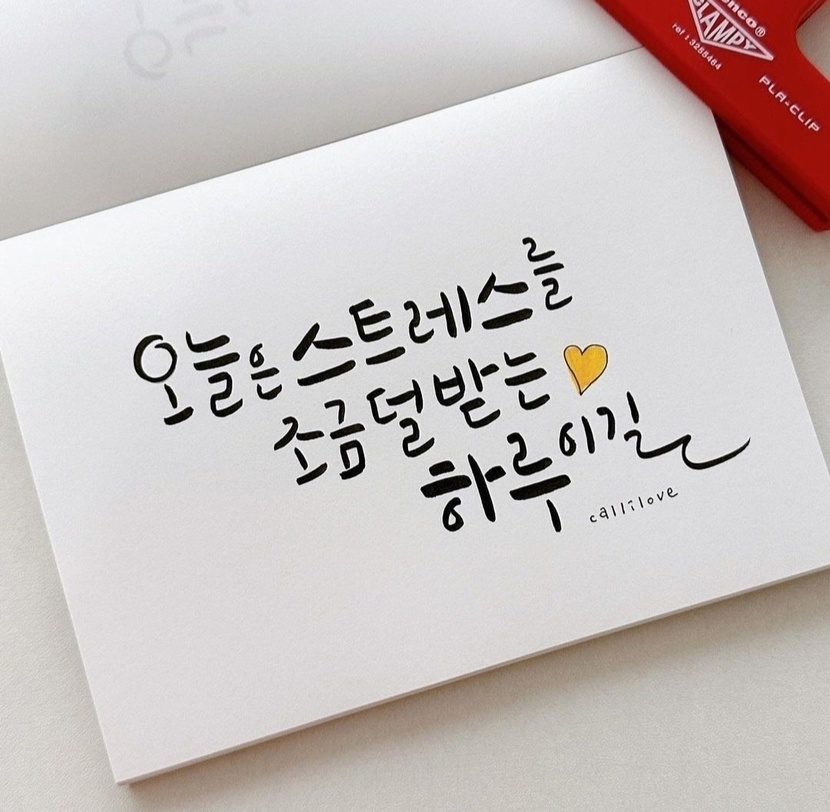 오늘은 스트레스를
조금 덜 받는
하루이길
callilove
penco®
CLAMPY
ref : 3255464
PLA-CLIP